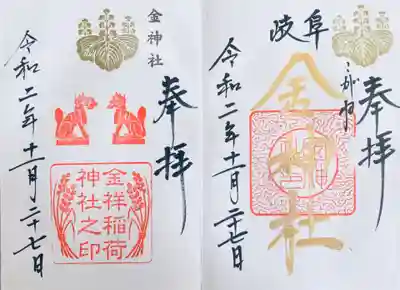 奉拝
金神社
金祥稲荷
神社之印
令和二年十一月二十七日
奉拝
こがね
岐阜
金神社
令和二年十一月二十七日